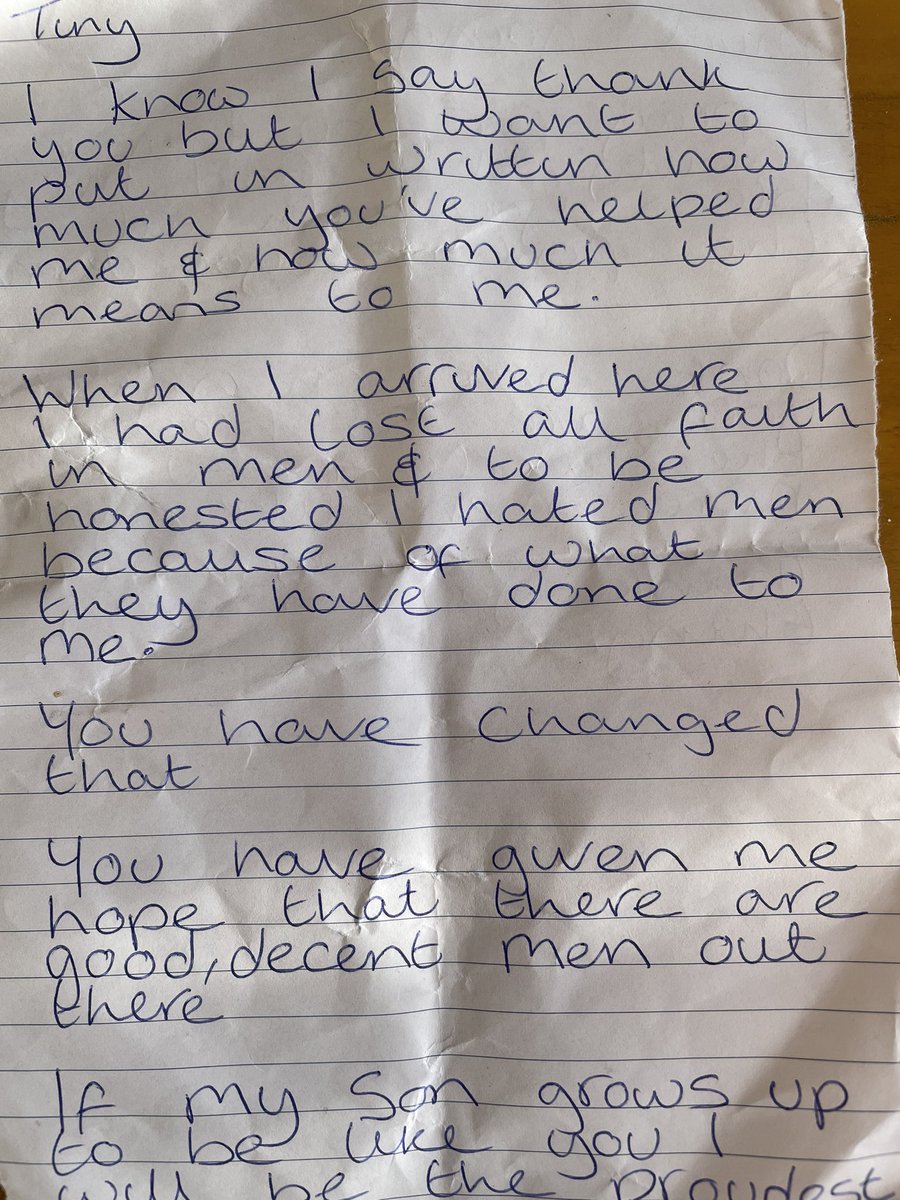 Tiny
I know I say thank
you but I want to
put in writtin how
much you've helped
me & how much it
means to me.
When I arrived here
I had lost all faith
in men & to be
honested I hated men
because of what
they have done to
me.
You have changed
that
You have given me
hope that there are
good, decent men out
there
If my son grows up
to be like you I
will be the proudest